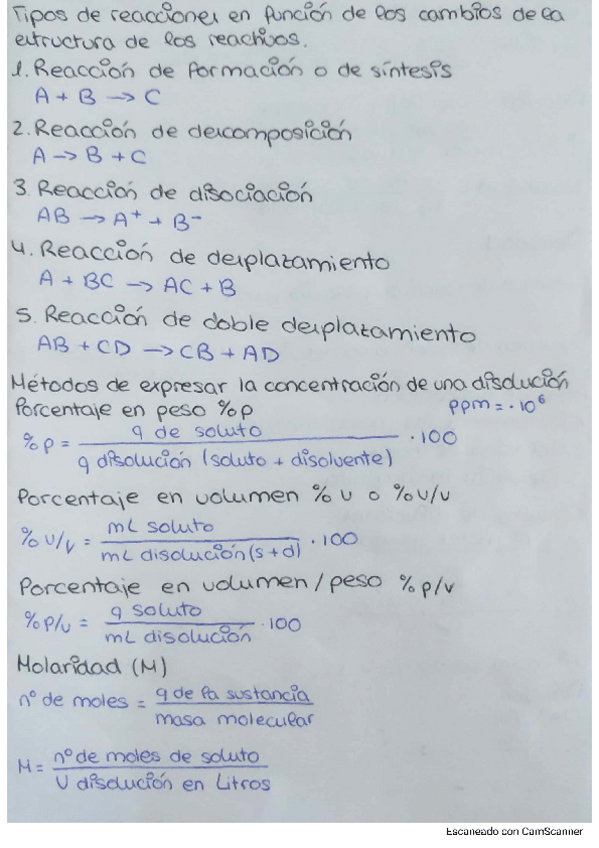 Tipos de reacciones en función de los cambios de la
estructura de los reactivos.
1. Reacción de formación o de síntesis
A + B → C
2. Reacción de descomposición
A → B + C
3. Reacción de disociación
AB → A⁺ + B⁻
4. Reacción de desplazamiento
A + BC → AC + B
5. Reacción de doble desplazamiento
AB + CD → CB + AD
Métodos de expresar la concentración de una disolución
Porcentaje en peso %p ppm = · 10⁶
%p = g de soluto / g disolución (soluto + disolvente) · 100
Porcentaje en volumen % v o % v/v
% v/v = mL soluto / mL disolución (s+d) · 100
Porcentaje en volumen/peso % p/v
% p/v = g soluto / mL disolución · 100
Molaridad (M)
nº de moles = g de la sustancia / masa molecular
M = nº de moles de soluto / V disolución en Litros
Escaneado con CamScanner